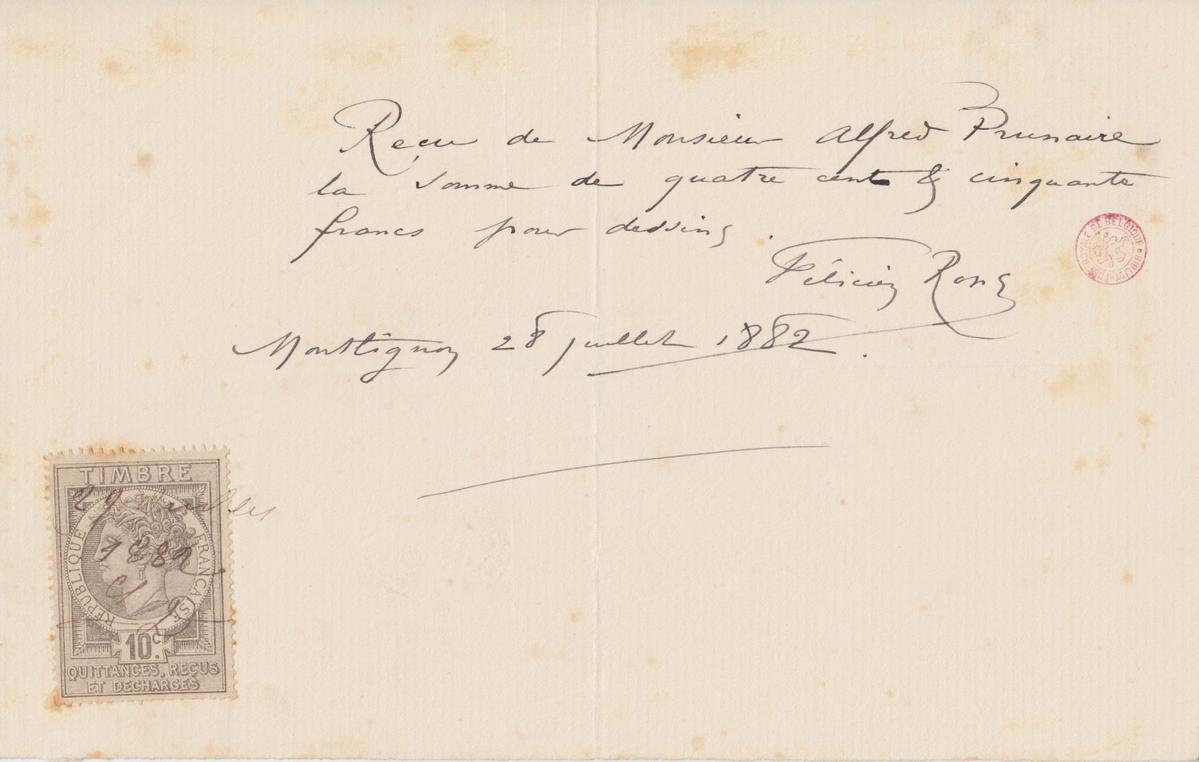 Reçu de Monsieur Alfred Prunaire
la somme de quatre cent & cinquante
francs pour dessins.
Félicien Rops
Montlignon 28 juillet 1882.
TIMBRE
29 juillet
1882
RÉPUBLIQUE FRANÇAISE
10c.
QUITTANCES, REÇUS
ET DECHARGES